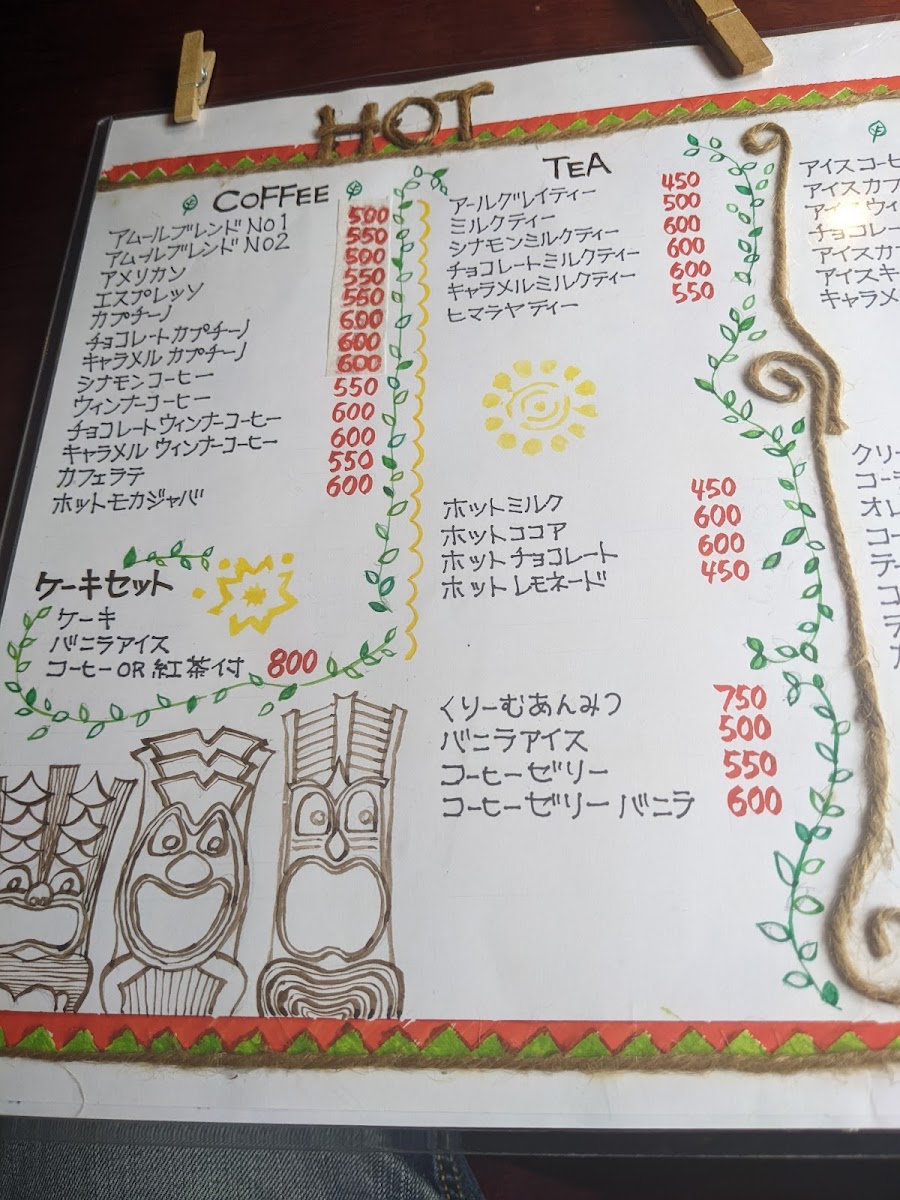 HOT
COFFEE
アムールブレンド NO1 500
アムールブレンド NO2 550
アメリカン 500
エスプレッソ 550
カプチーノ 550
チョコレートカプチーノ 600
キャラメルカプチーノ 600
シナモンコーヒー 600
ウィンナーコーヒー 550
チョコレートウィンナーコーヒー 600
キャラメルウィンナーコーヒー 600
カフェラテ 550
ホットモカジャバ 600
ケーキセット
ケーキ
バニラアイス
コーヒーOR紅茶付 800
TEA
アールグレイティー 450
ミルクティー 500
シナモンミルクティー 600
チョコレートミルクティー 600
キャラメルミルクティー 600
ヒマラヤティー 550
ホットミルク 450
ホットココア 600
ホットチョコレート 600
ホットレモネード 450
くりーむあんみつ 750
バニラアイス 500
コーヒーゼリー 550
コーヒーゼリー バニラ 600
アイスコーヒ
アイスカフ
アイスウィ
チョコレー
アイスカフ
アイスキ
キャラメ
クリー
コー
オレ
コー
テー